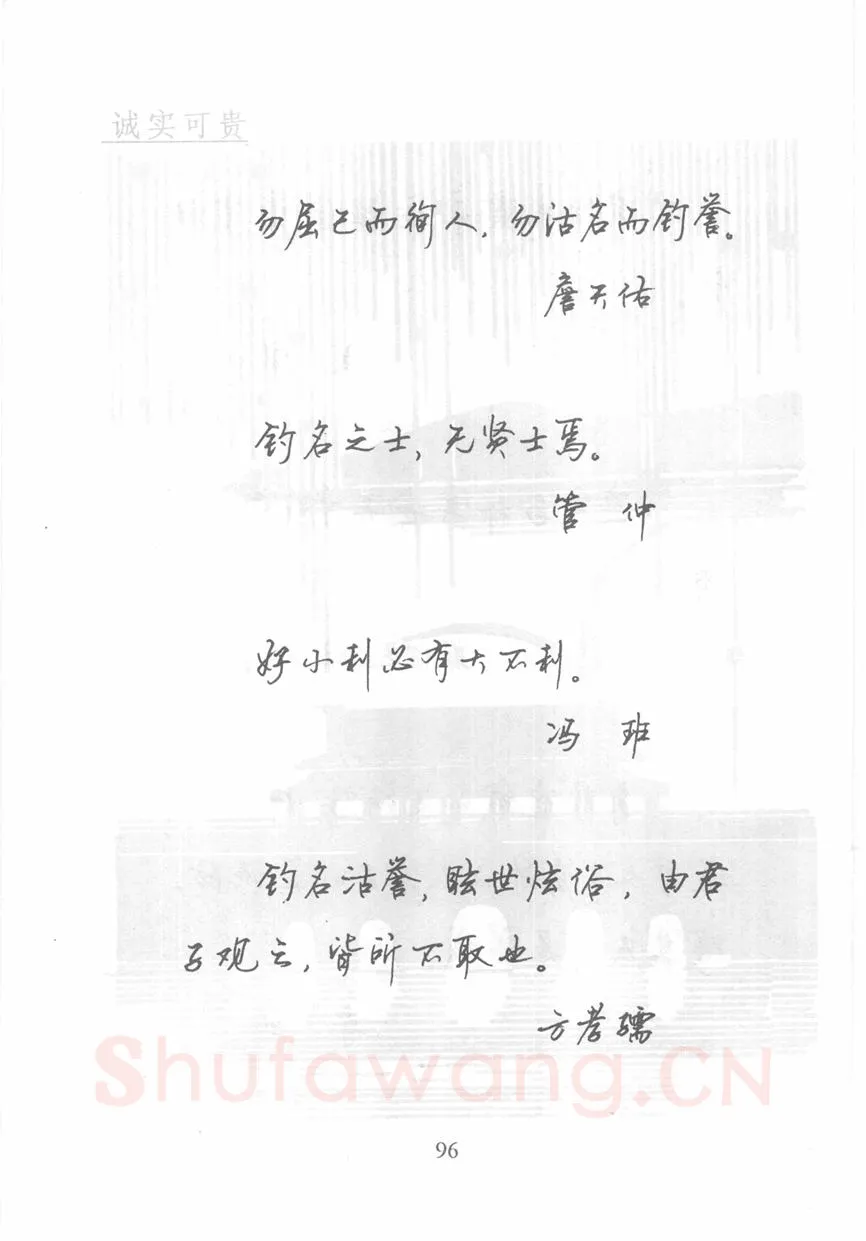 诚实可贵
勿屈己而徇人，勿沽名而钓誉。
詹天佑
钓名之士，无贤士焉。
管 仲
好小利必有大不利。
冯 班
钓名沽誉，眩世炫俗，由君
子观之，皆所不取也。
方孝孺
Shufawang.CN
96